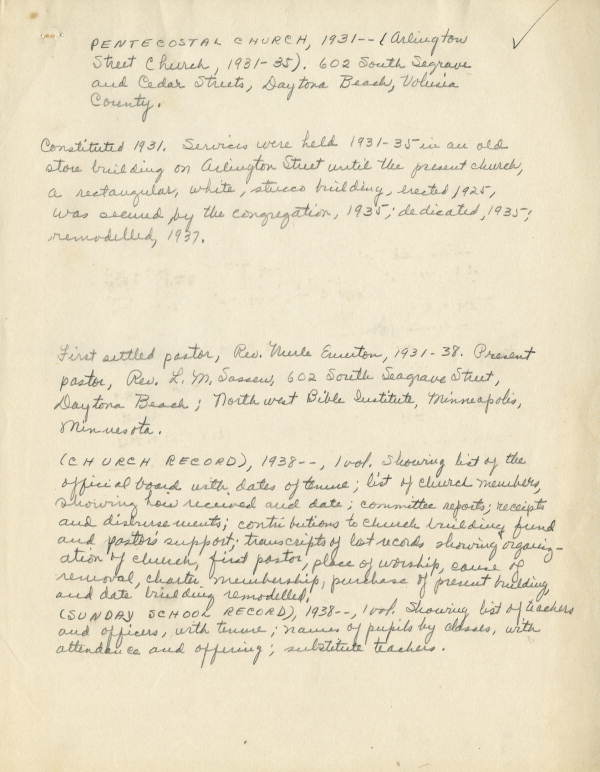 PENTECOSTAL CHURCH, 1931-- (Arlington
Street Church, 1931-35). 602 South Segrave
and Cedar Streets, Daytona Beach, Volusia
County.
Constituted 1931. Services were held 1931-35 in an old
store building on Arlington Street until the present church,
a rectangular, white, stucco building, erected, 1925,
was secured by the congregation, 1935; dedicated, 1935;
remodelled, 1937.
First settled pastor, Rev. Merle Emerton, 1931-38. Present
pastor, Rev. L. M. 602 South Seagrave Street,
Daytona Beach; North west Bible Institute, Minneapolis,
Minnesota.
(CHURCH RECORD), 1938--, 1 vol. Showing list of the
official board with dates of tenure; list of church members,
showing how received and date; committee reports; receipts
and disbursements; contributions to church building fund
and pastor's support; transcripts of lost records showing organiz-
ation of church, first pastor, place of worship, cause of
removal, charter membership, purchase of present building,
and date building remodelled.
(SUNDAY SCHOOL RECORD), 1938--, 1 vol. Showing list of teachers
and officers, with tenure; names of pupils by classes, with
attendance and offering; substitute teachers.